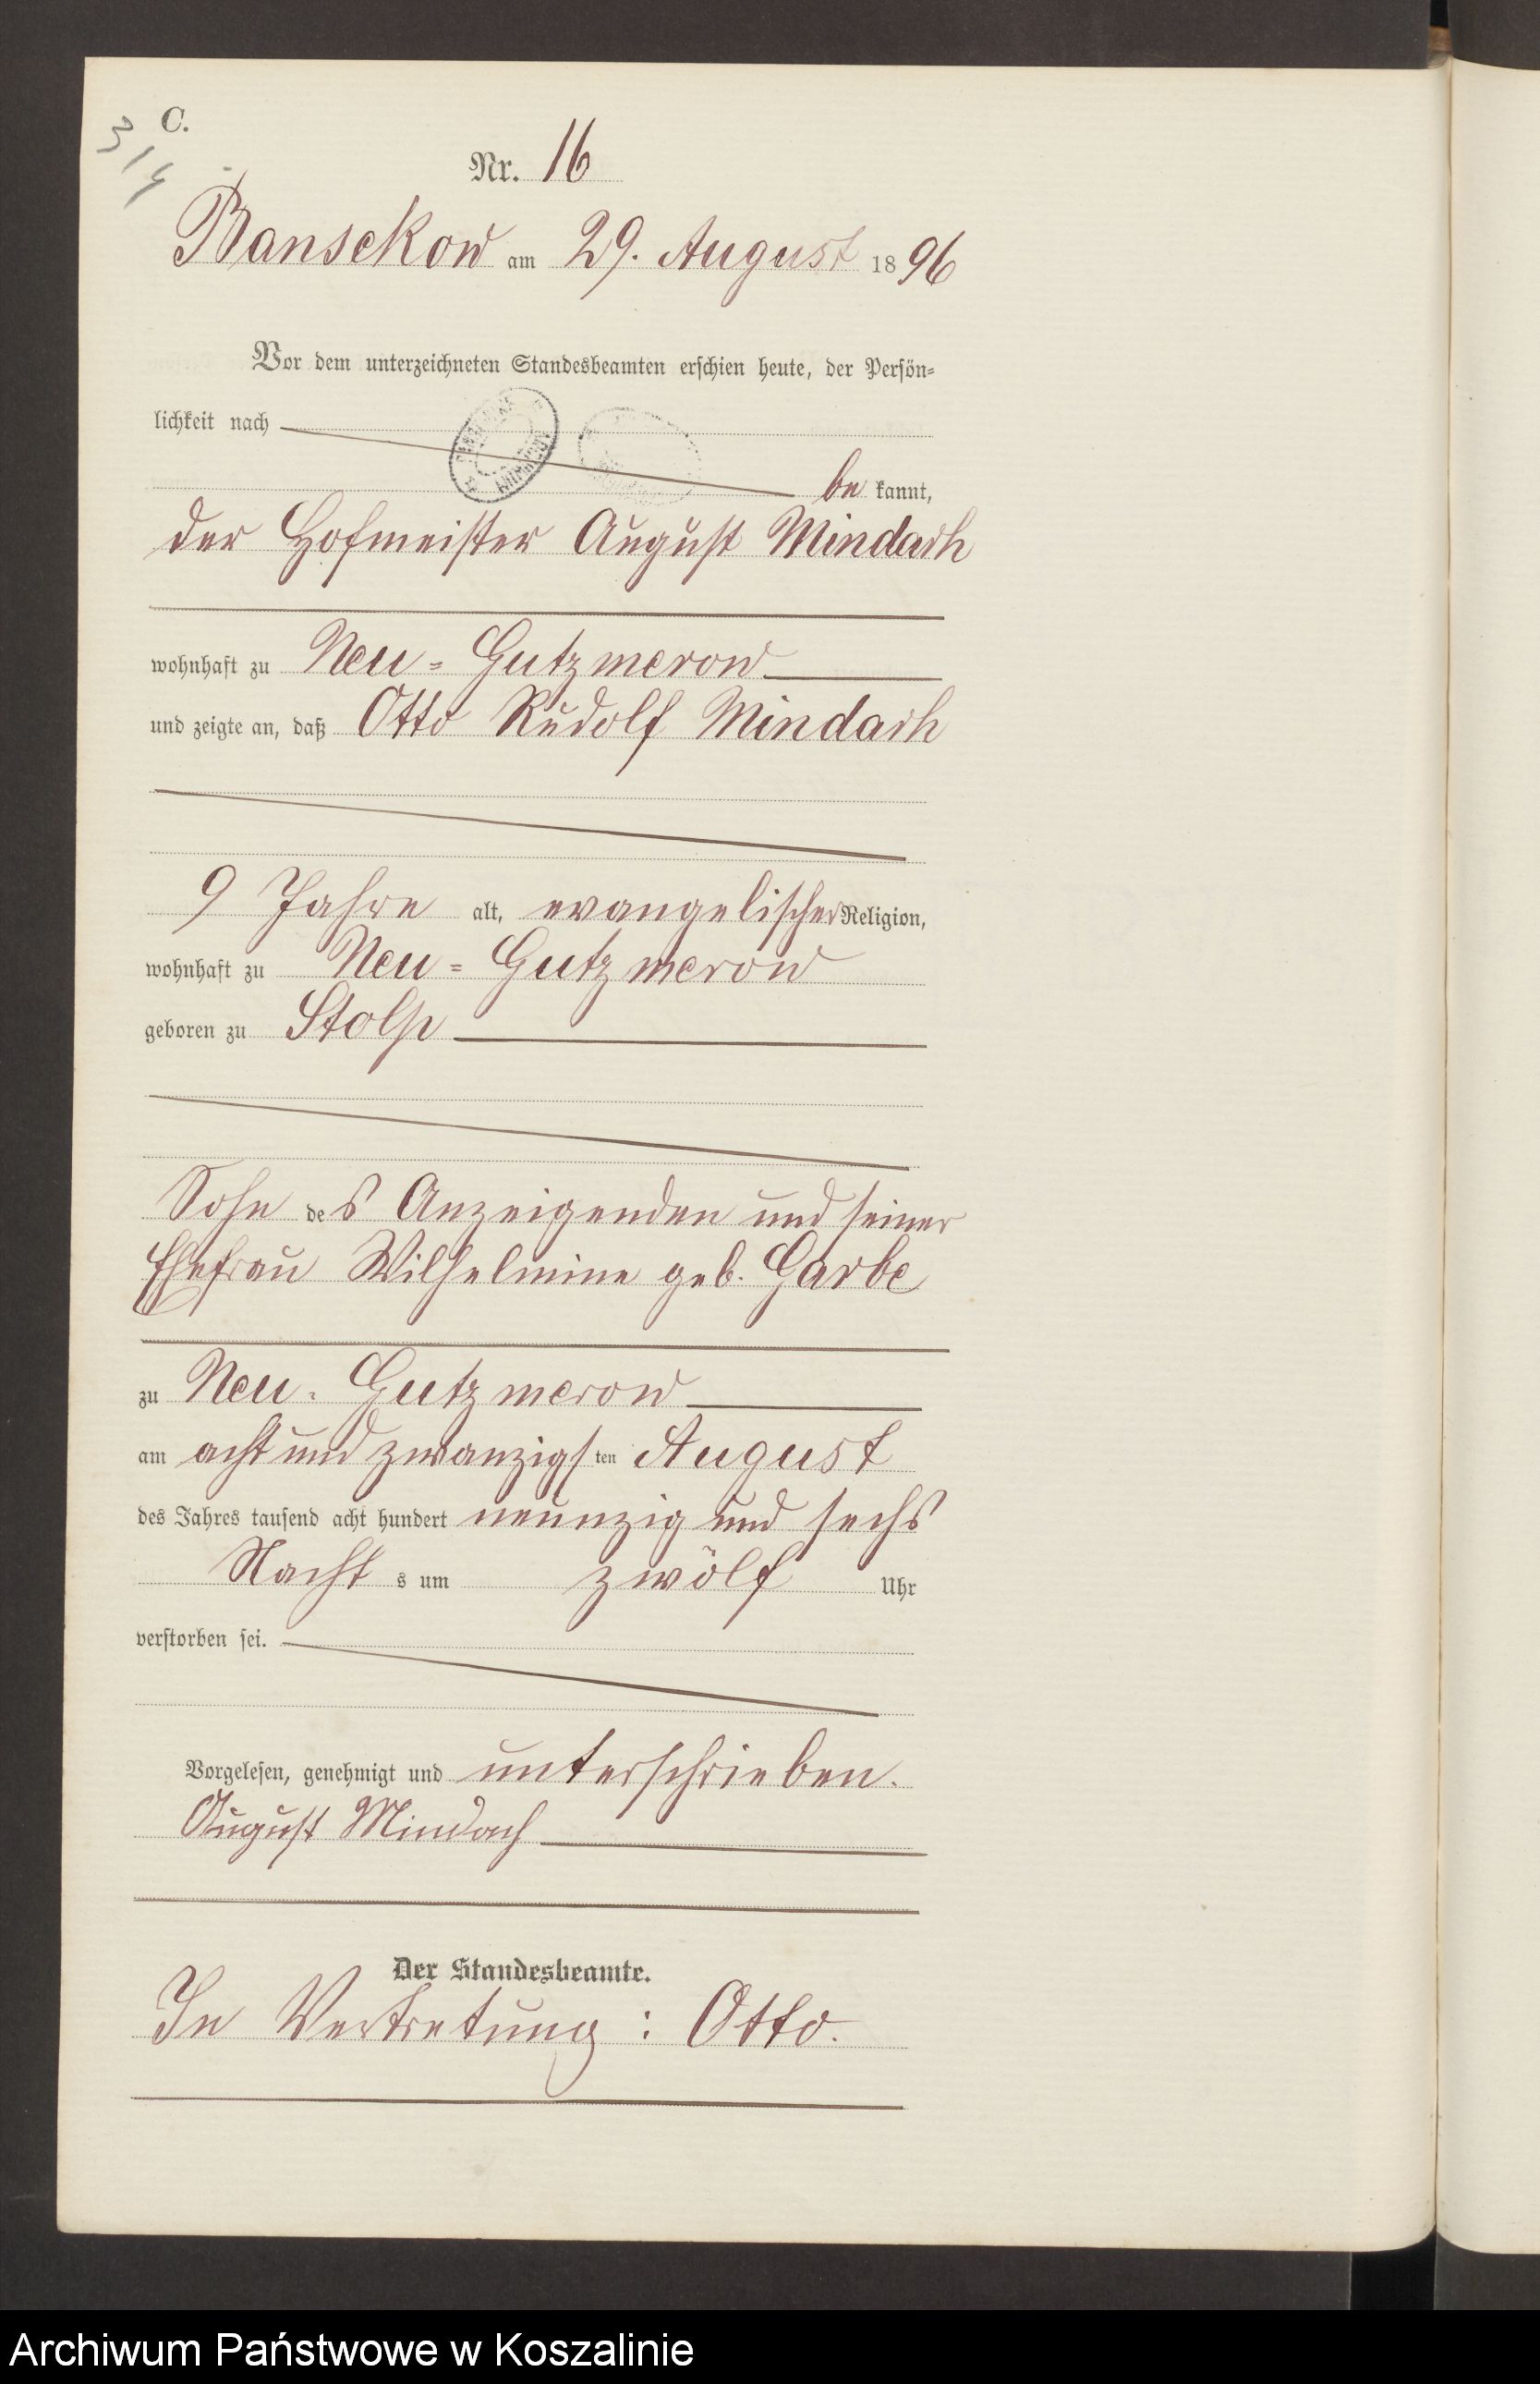 C.
314
Nr. 16
Bansekow am 29. August 1896
Vor dem unterzeichneten Standesbeamten erschien heute, der Persön-
lichkeit nach
be kannt,
der Hofmeister August Mindach
wohnhaft zu Neu-Gutzmerow
und zeigte an, daß Otto Rudolf Mindach
9 Jahre alt, evangelischer Religion,
wohnhaft zu Neu-Gutzmerow
geboren zu Stolp
Sohn des Anzeigenden und seiner
Ehefrau Wilhelmine geb. Garbe
zu Neu-Gutzmerow
am acht und zwanzigsten August
des Jahres tausend acht hundert neunzig und sechs
Nachts um zwölf Uhr
verstorben sei.
Vorgelesen, genehmigt und unterschrieben.
August Mindach
Der Standesbeamte.
In Vertretung: Otto.
Archiwum Państwowe w Koszalinie